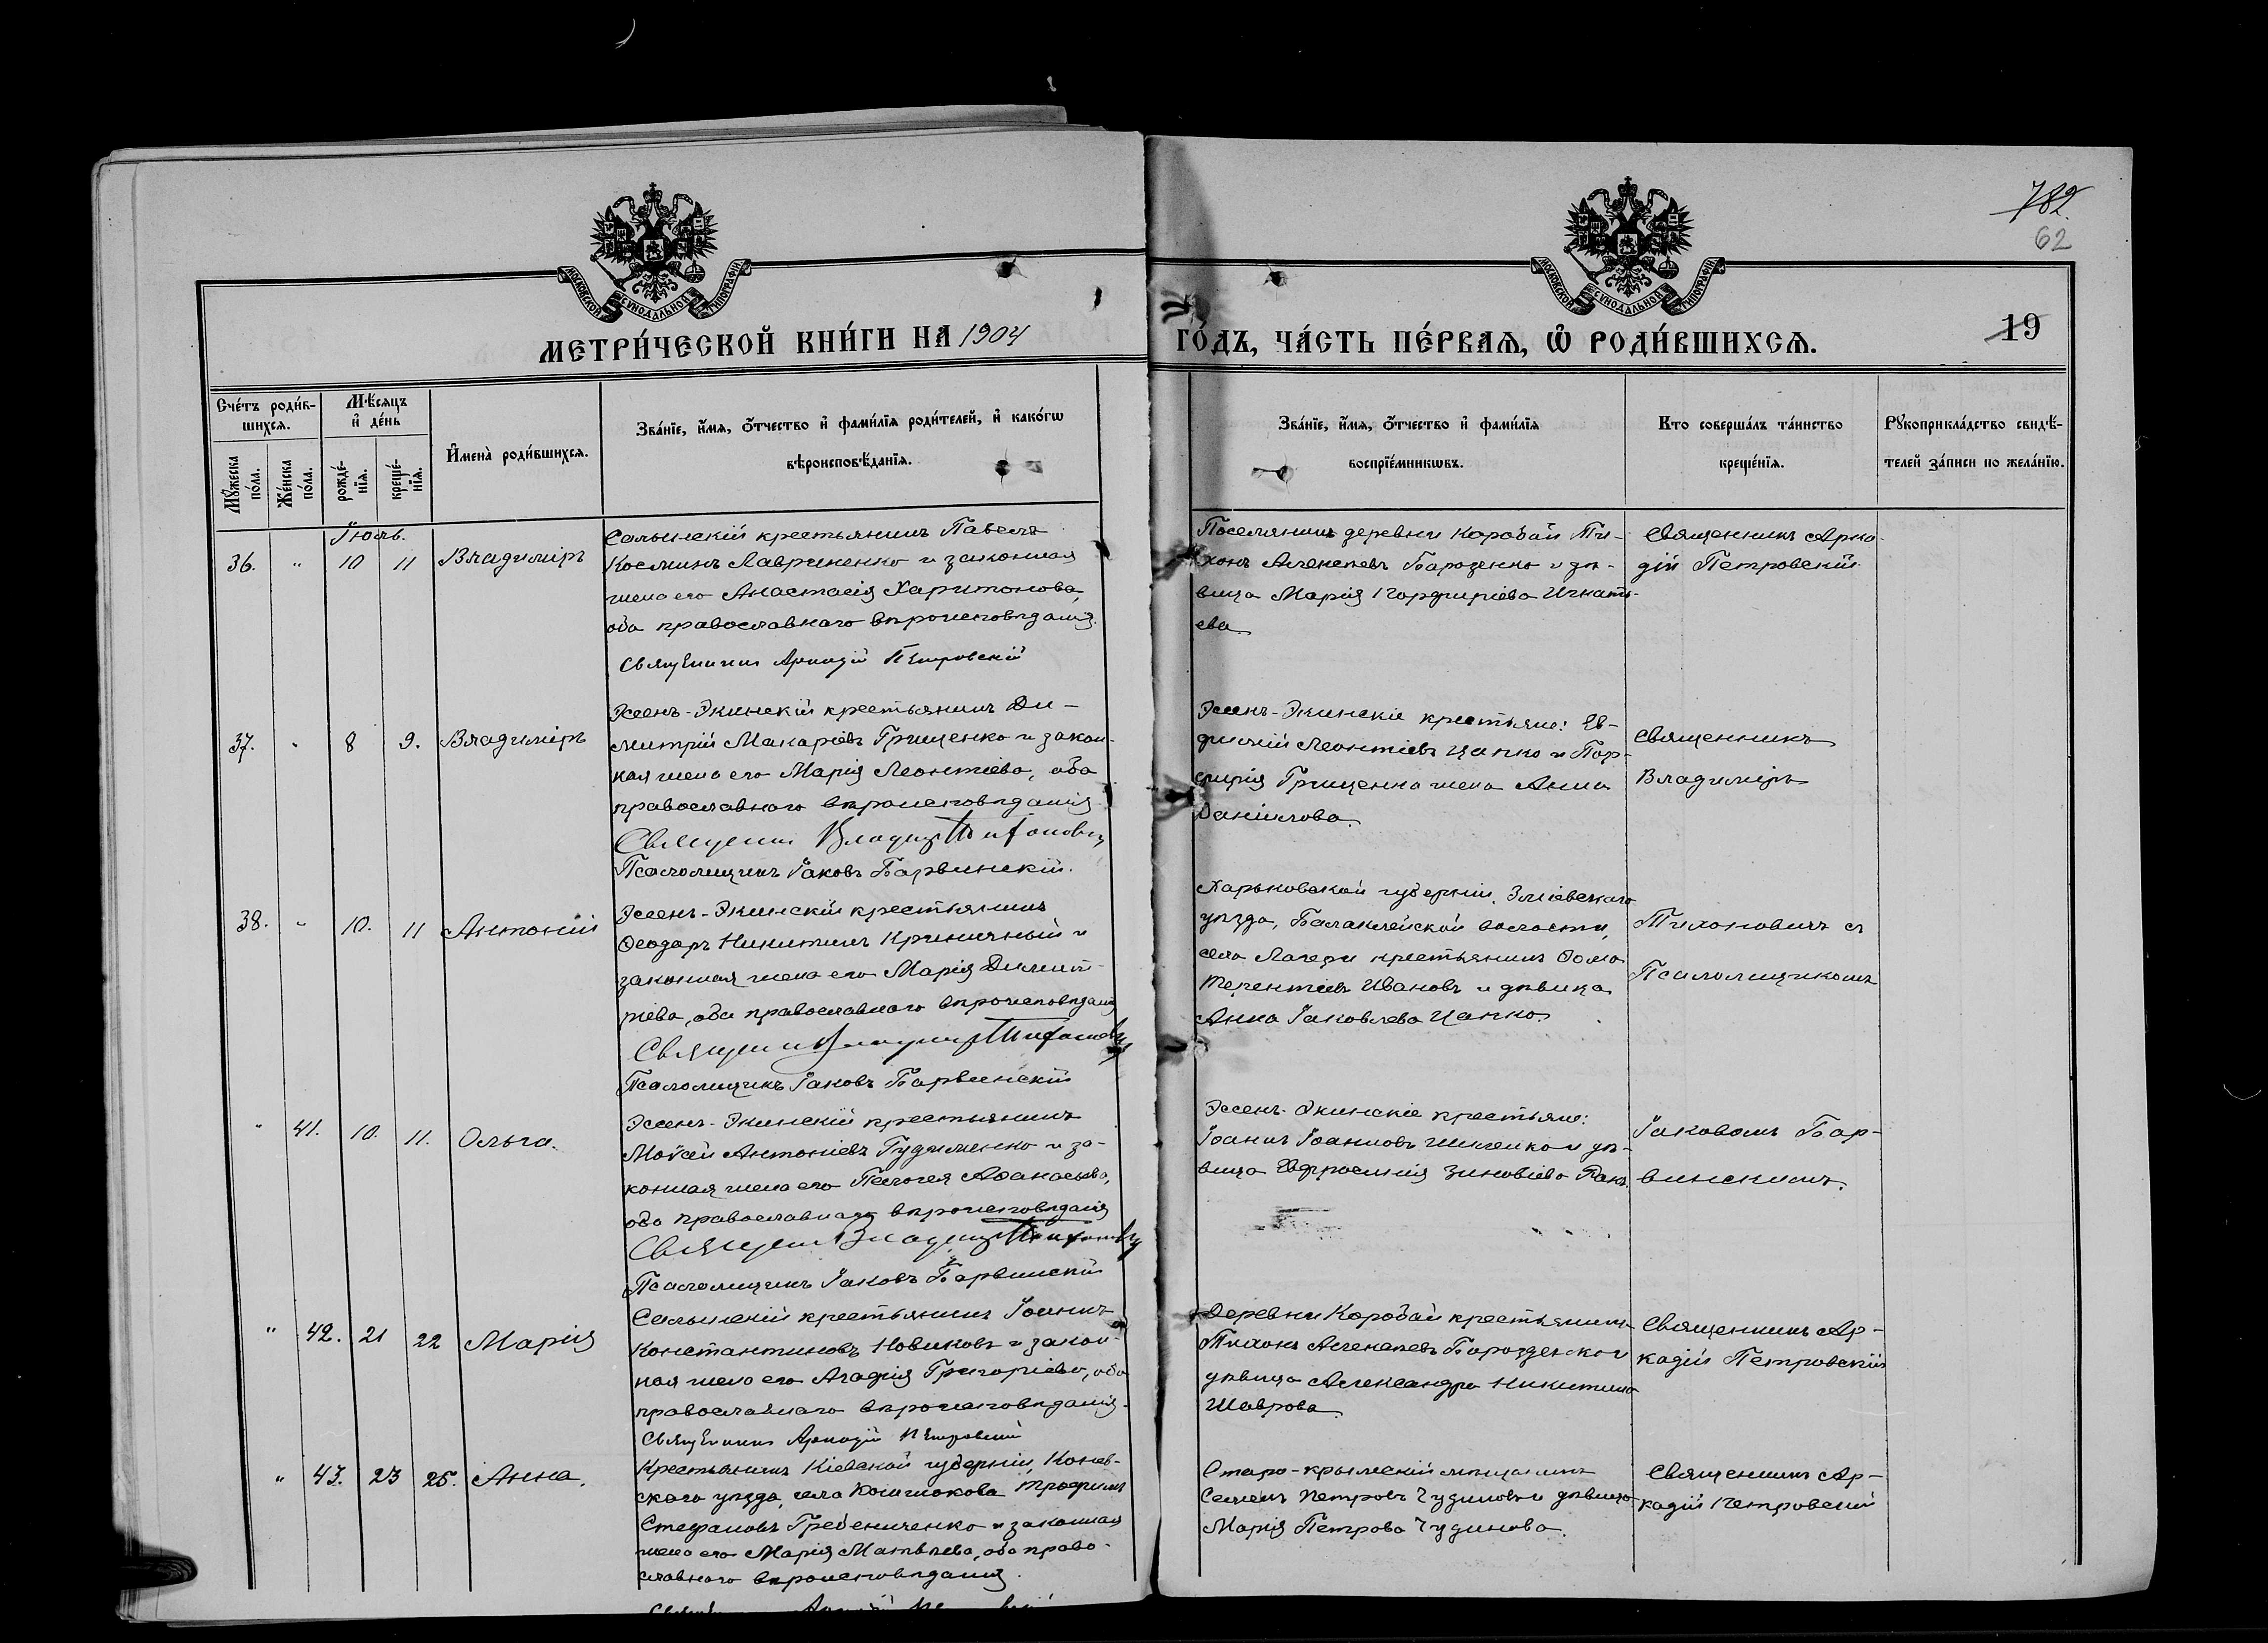 782.
62
МОСКОВСКОЙ СѴНОДАЛЬНОЙ ТИПОГРАФІИ
МОСКОВСКОЙ СѴНОДАЛЬНОЙ ТИПОГРАФІИ
МЕТРИ́ЧЕСКОЙ КНИ́ГИ НА 1904
ГО́ДЪ, ЧА́СТЬ ПЕ́РВАѦ, Ѽ РОДИ́ВШИХСѦ.
19
Сче́тъ роди́в-
шихсѧ.
Мꙋ́жеска по́ла.
Же́нска по́ла.
Мѣ́сяцъ
и҆ де́нь
рожде́-
нїѧ.
креще́-
нїѧ.
И҆мена̀ роди́вшихсѧ.
Зва́нїе, и҆́мѧ, ѻ҆́тчество и҆ фами́лїѧ роди́телей, и҆ како́гѡ
вѣроисповѣ́данїѧ.
Зва́нїе, и҆́мѧ, ѻ҆́тчество и҆ фами́лїѧ
воспрїе́мникѡвъ.
Кто соверша́лъ та́инство
креще́нїѧ.
Рꙋкоприкла́дство свидѣ́-
телей за́писи по жела́нїю.
Іюль.
36. " 10 11 Владиміръ
Салынскій крестьянинъ Павелъ
Косминъ Лавриненко и законная
жена его Анастасія Харитонова,
оба православнаго вѣроисповѣданія.
Священникъ Аркадій Петровскій
Поселянинъ деревни Коробай Ти-
хонъ Алексѣевъ Барозенко и дѣ-
вица Марія Порфиріева Игнать-
ева
Священникъ Арка-
дій Петровскій
37. " 8 9. Владиміръ
Эссенъ-Экинскій крестьянинъ Ди-
митрій Макаріевъ Грищенко и закон-
ная жена его Марія Леонтіева, оба
православнаго вѣроисповѣданія
Священникъ Владиміръ Тихоновичъ
Псаломщикъ Іаковъ Барвинскій.
Эссенъ-Экинскіе крестьяне: Ев-
фимій Леонтіевъ Цапко и Пор-
фирія Грищенка жена Анна
Даніилова.
Священникъ
Владиміръ
38. " 10. 11 Антоній
Эссенъ-Экинскій крестьянинъ
Ѳеодоръ Никитинъ Криничный и
законная жена его Марія Димит-
ріева, оба православнаго вѣроисповѣданія
Священникъ Владиміръ Тихоновичъ
Псаломщикъ Іаковъ Барвинскій
Харьковской губерніи, Зміевскаго
уѣзда, Балаклейской волости,
села Лагери крестьянинъ Ѳома
Терентіевъ Ивановъ и дѣвица
Анна Іаковлева Цапко.
Тихоновичъ съ
Псаломщикомъ
" 41. 10. 11. Ольга.
Эссенъ-Экинскій крестьянинъ
Моѵсей Антоніевъ Гудименко и за-
конная жена его Пелагея Аѳанасьева,
оба православнаго вѣроисповѣданія
Священникъ Владиміръ Тихоновичъ
Псаломщикъ Іаковъ Барвинскій
Эссенъ-Экинскіе крестьяне:
Іоаннъ Іоанновъ и дѣ-
вица Евфросинія Зиновіева
Іаковомъ Бар-
винскимъ.
" 42. 21 22 Марія
Салынскій крестьянинъ Іоаннъ
Константиновъ Новиковъ и закон-
ная жена его Агафія Григоріева, оба
православнаго вѣроисповѣданія.
Священникъ Аркадій Петровскій
Деревни Коробай крестьянинъ
Тихонъ Алексѣевъ Борозденко и
дѣвица Александра Никитина
Шаврова
Священникъ Ар-
кадій Петровскій
" 43. 23 25. Анна.
Крестьянинъ Кіевской губерніи, Канев-
скаго уѣзда, села Трофимъ
Стефановъ Гребениченко и законная
жена его Марія Матвѣева, оба право-
славнаго вѣроисповѣданія.
Старо-крымскій мѣщанинъ
Семенъ Петровъ Чудиновъ и дѣвица
Марія Петрова Чудинова.
Священникъ Ар-
кадій Петровскій